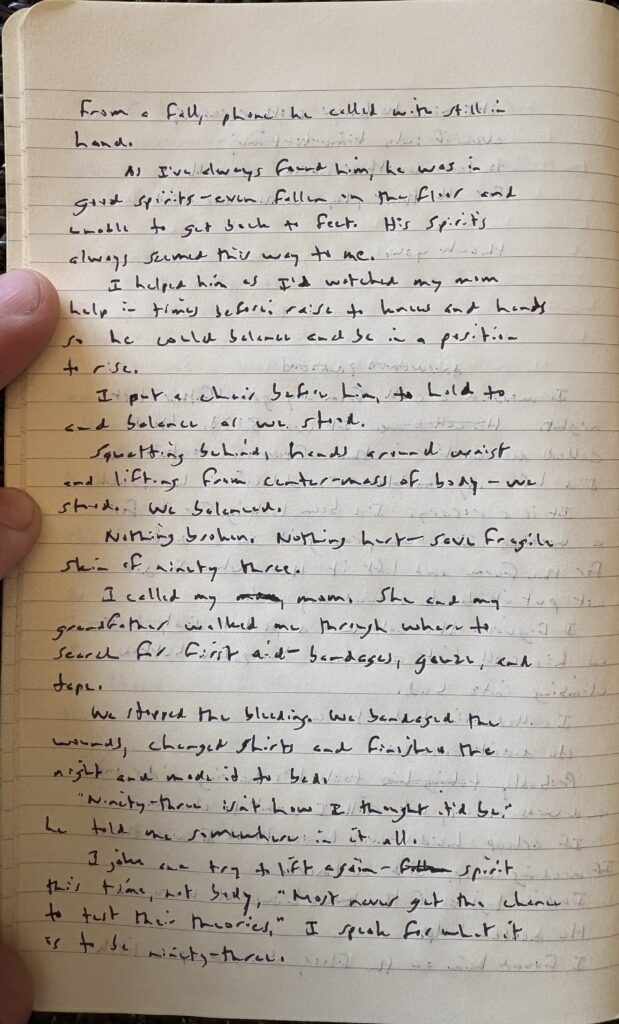 from a fall, phone he called with still in
hand.
As I've always found him, he was in
good spirits - even fallen on the floor and
unable to get back to feet. His spirits
always seemed this way to me.
I helped him as I'd watched my mom
help in times before: raise to knees and hands
so he could balance and be in a position
to rise.
I put a chair before him, to hold to
and balance as we stood.
Squatting behind, hands around waist
and lifting from center-mass of body - we
stood. We balanced.
Nothing broken. Nothing hurt - save fragile
skin of ninety three.
I called my mom. She and my
grandfather walked me through where to
search for first aid - bandages, gauze, and
tape.
We stopped the bleeding. We bandaged the
wounds, changed shirts and finished the
night and made it to bed.
"Ninety-three isn't how I thought it'd be."
he told me somewhere in it all.
I joke and try to lift again - spirit
this time, not body, "Most never get the chance
to test their theories," I speak for what it
is to be ninety-three.